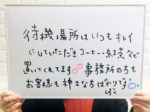 待機場所はいつもキレイ
にしていただきコーヒー紅茶など
置いてくれてます 事務所の方も
お客様も神さまな方ばかりです